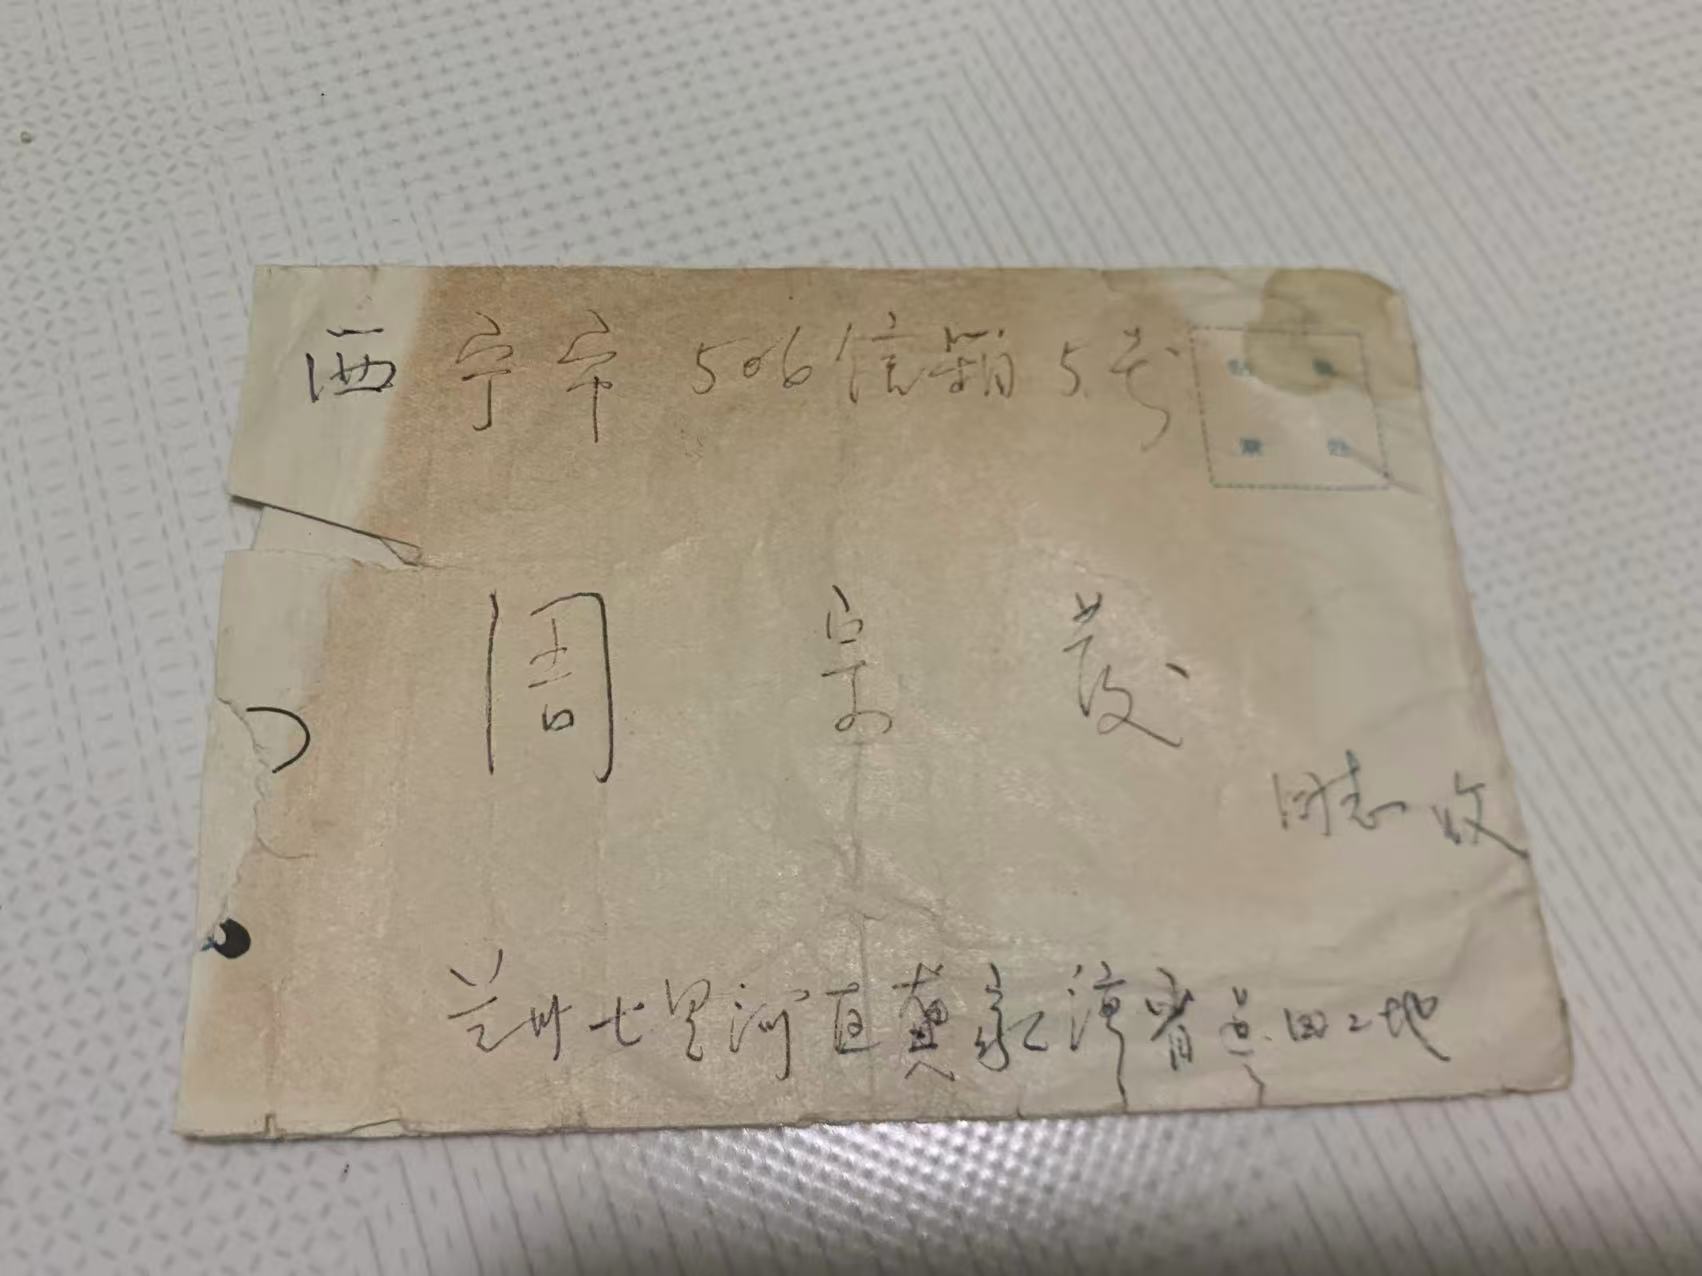 西宁市506信箱5号
贴邮
票处
周宗茂
同志收
兰州七里河区黄家滩省总四工地